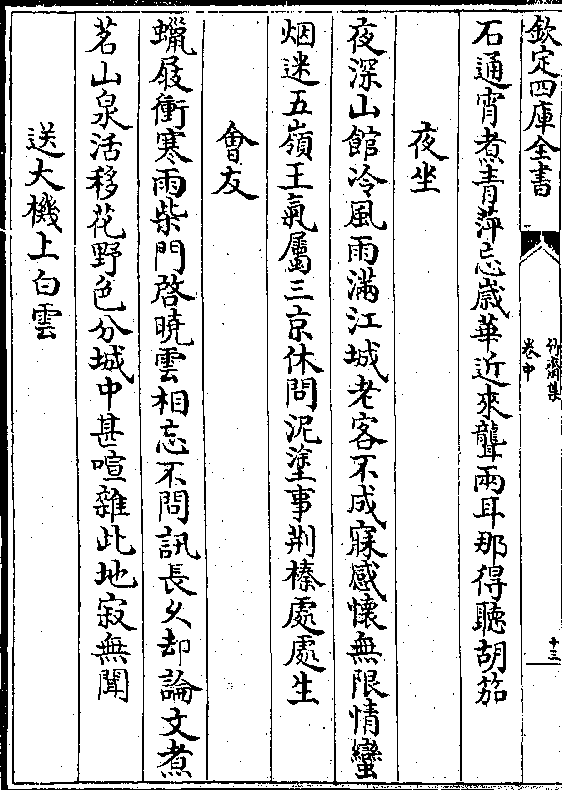 欽定四庫全書
竹齋集
卷中
十三
石通宵煮青萍忘歲華近來聾兩耳那得聽胡笳
夜坐
夜深山館冷風雨滿江城老客不成寐感懷無限情蠻
烟迷五嶺王氣屬三京休問泥塗事荆榛處處生
會友
蠟屐衝寒雨柴門啓曉雲相忘不問訊長久却論文煮
茗山泉活移花野色分城中甚喧雜此地寂無聞
送大機上白雲